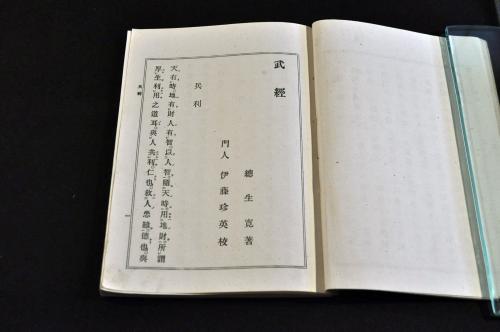 武經
總生寬著
門人 伊藤珍英校
兵利
天有時地有財人有智以人智隨天時用地財所謂
厚生利用之道耳與人共利仁也救人患難德也與